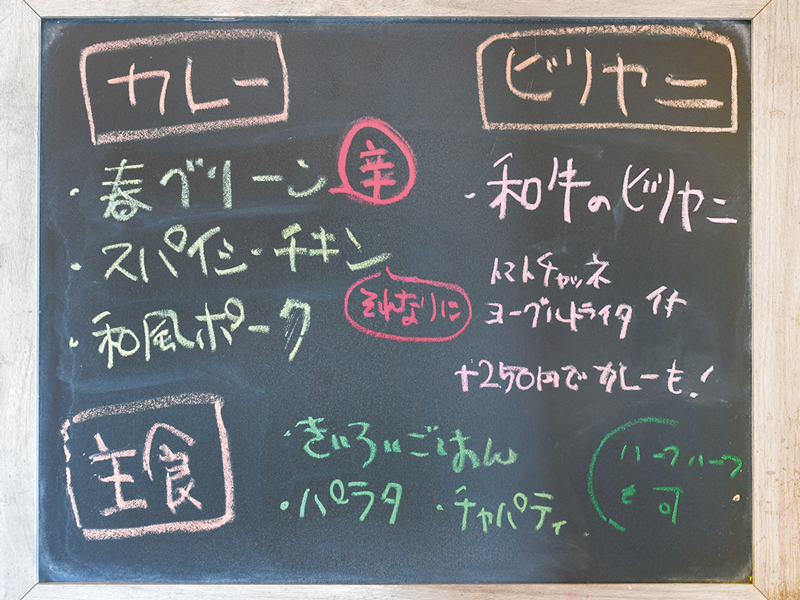 カレー
・春ベリーン
辛
・スパイシ・チキン
それなりに
・和風ポーク
ビリヤニ
・和牛のビリヤニ
トマトチャッネ
ヨーグルトライタ 付
+250円でカレーも!
主食
・きいろいごはん
・パラタ ・チャパティ
ハーフハーフ
も可